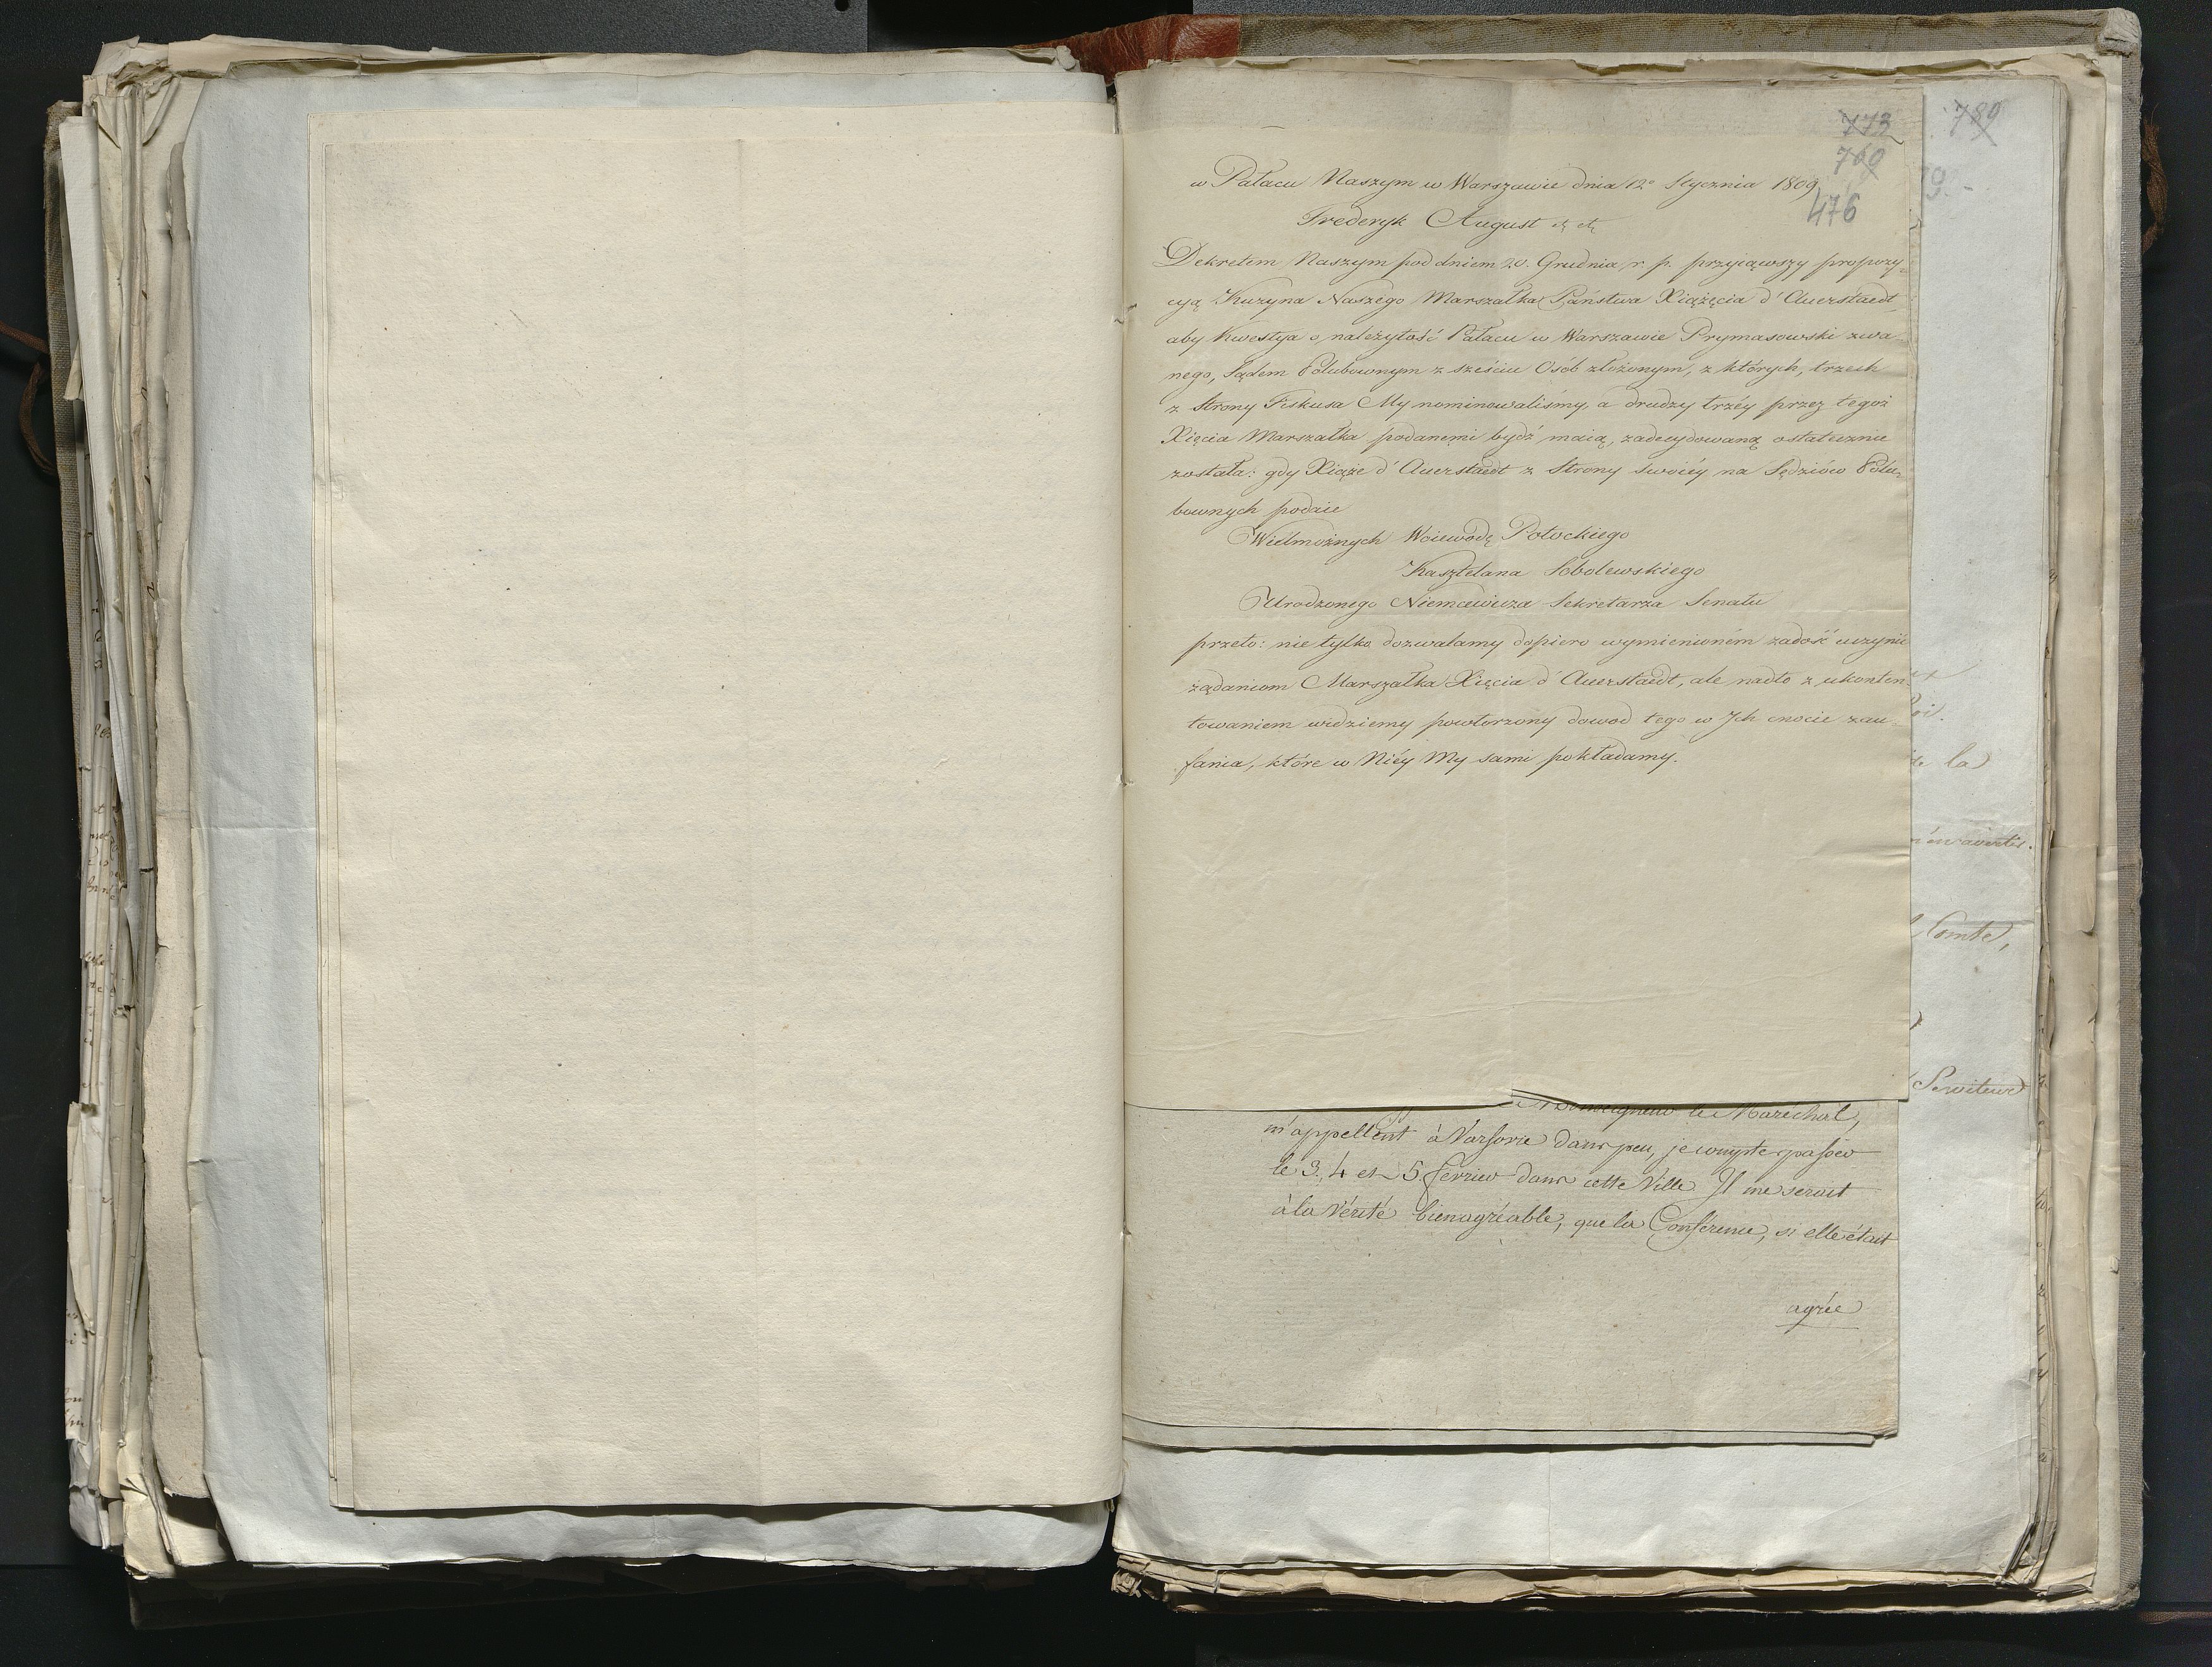 773
760
476
789
w Pałacu Naszym w Warszawie dnia 12° Stycznia 1809
Frederyk August etc etc
Dekretem Naszym pod dniem 20. Grudnia r. p. przyiąwszy propozy-
cyą Kuzyna Naszego Marszałka Państwa Xiążęcia d'Auerstaedt,
aby Kwestya o należytość Pałacu w Warszawie Prymasowski zwa-
nego, Sądem Polubownym z sześciu Osób złożonym, z których, trzech
z Strony Fiskusa My nominowaliśmy, a drudzy trzéy przez tegoż
Xięcia Marszałka podanemi bydź maią, zadecydowaną ostatecznie
została: gdy Xiąże d'Auerstaedt z Strony swoiéy na Sędziów Polu-
bownych podaie
Wielmożnych Woiewodę Potockiego
Kasztelana Sobolewskiego
Urodzonego Niemcewicza Sekretarza Senatu
przeto: nie tylko dozwalamy dopiero wymienioném zadość uczynić
żądaniom Marszałka Xięcia d'Auerstaedt, ale nadto z ukonten-
towaniem widziemy powtorzony dowod tego w Ich cnocie zau-
fania, które w Niéy My sami pokładamy.
la
Comte,
Serviteur
le Maréchal,
m'appellent à Varsovie dans peu, je compte passer
le 3, 4 et 5 fevrier dans cette Ville. Il me serait
à la Vérité bien agréable, que la Conférence, si elle était
agrée